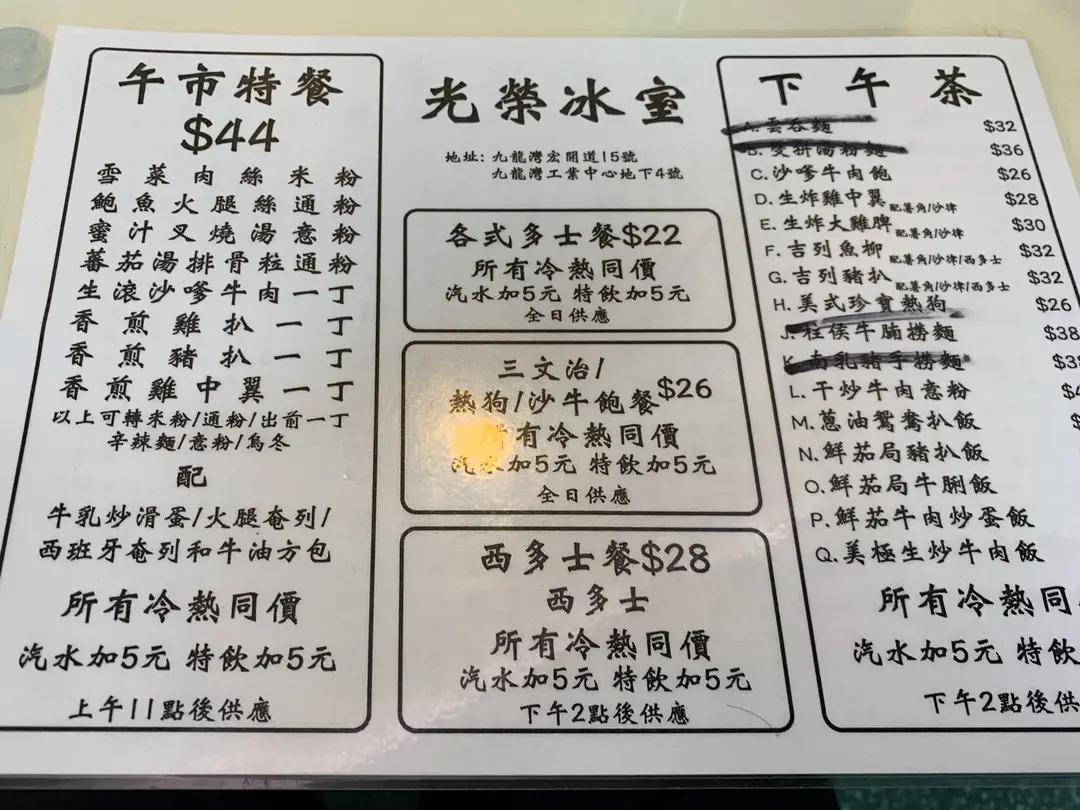 午市特餐
$44
雪菜肉絲米粉
鮑魚火腿絲通粉
蜜汁叉燒湯意粉
蕃茄湯排骨粒通粉
生滾沙嗲牛肉一丁
香煎雞扒一丁
香煎豬扒一丁
香煎雞中翼一丁
以上可轉米粉/通粉/出前一丁
辛辣麵/意粉/烏冬
配
牛乳炒滑蛋/火腿奄列/
西班牙奄列和牛油方包
所有冷熱同價
汽水加5元 特飲加5元
上午11點後供應
光榮冰室
地址: 九龍灣宏開道15號
九龍灣工業中心地下4號
各式多士餐$22
所有冷熱同價
汽水加5元 特飲加5元
全日供應
三文治/
熱狗/沙牛飽餐$26
所有冷熱同價
汽水加5元 特飲加5元
全日供應
西多士餐$28
西多士
所有冷熱同價
汽水加5元 特飲加5元
下午2點後供應
下午茶
A. 雲吞麵 $32
B. 雙拼湯粉麵 $36
C. 沙嗲牛肉飽 $26
D. 生炸雞中翼 配薯角/沙律 $28
E. 生炸大雞脾 配薯角/沙律 $30
F. 吉列魚柳 配薯角/沙律/西多士 $32
G. 吉列豬扒 配薯角/沙律/西多士 $32
H. 美式珍寶熱狗 $26
J. 柱侯牛腩撈麵 $38
K. 南乳豬手撈麵
L. 干炒牛肉意粉
M. 蔥油鴛鴦扒飯
N. 鮮茄局豬扒飯
O. 鮮茄局牛脷飯
P. 鮮茄牛肉炒蛋飯
Q. 美極生炒牛肉飯
所有冷熱同
汽水加5元 特飲
下午2點後供